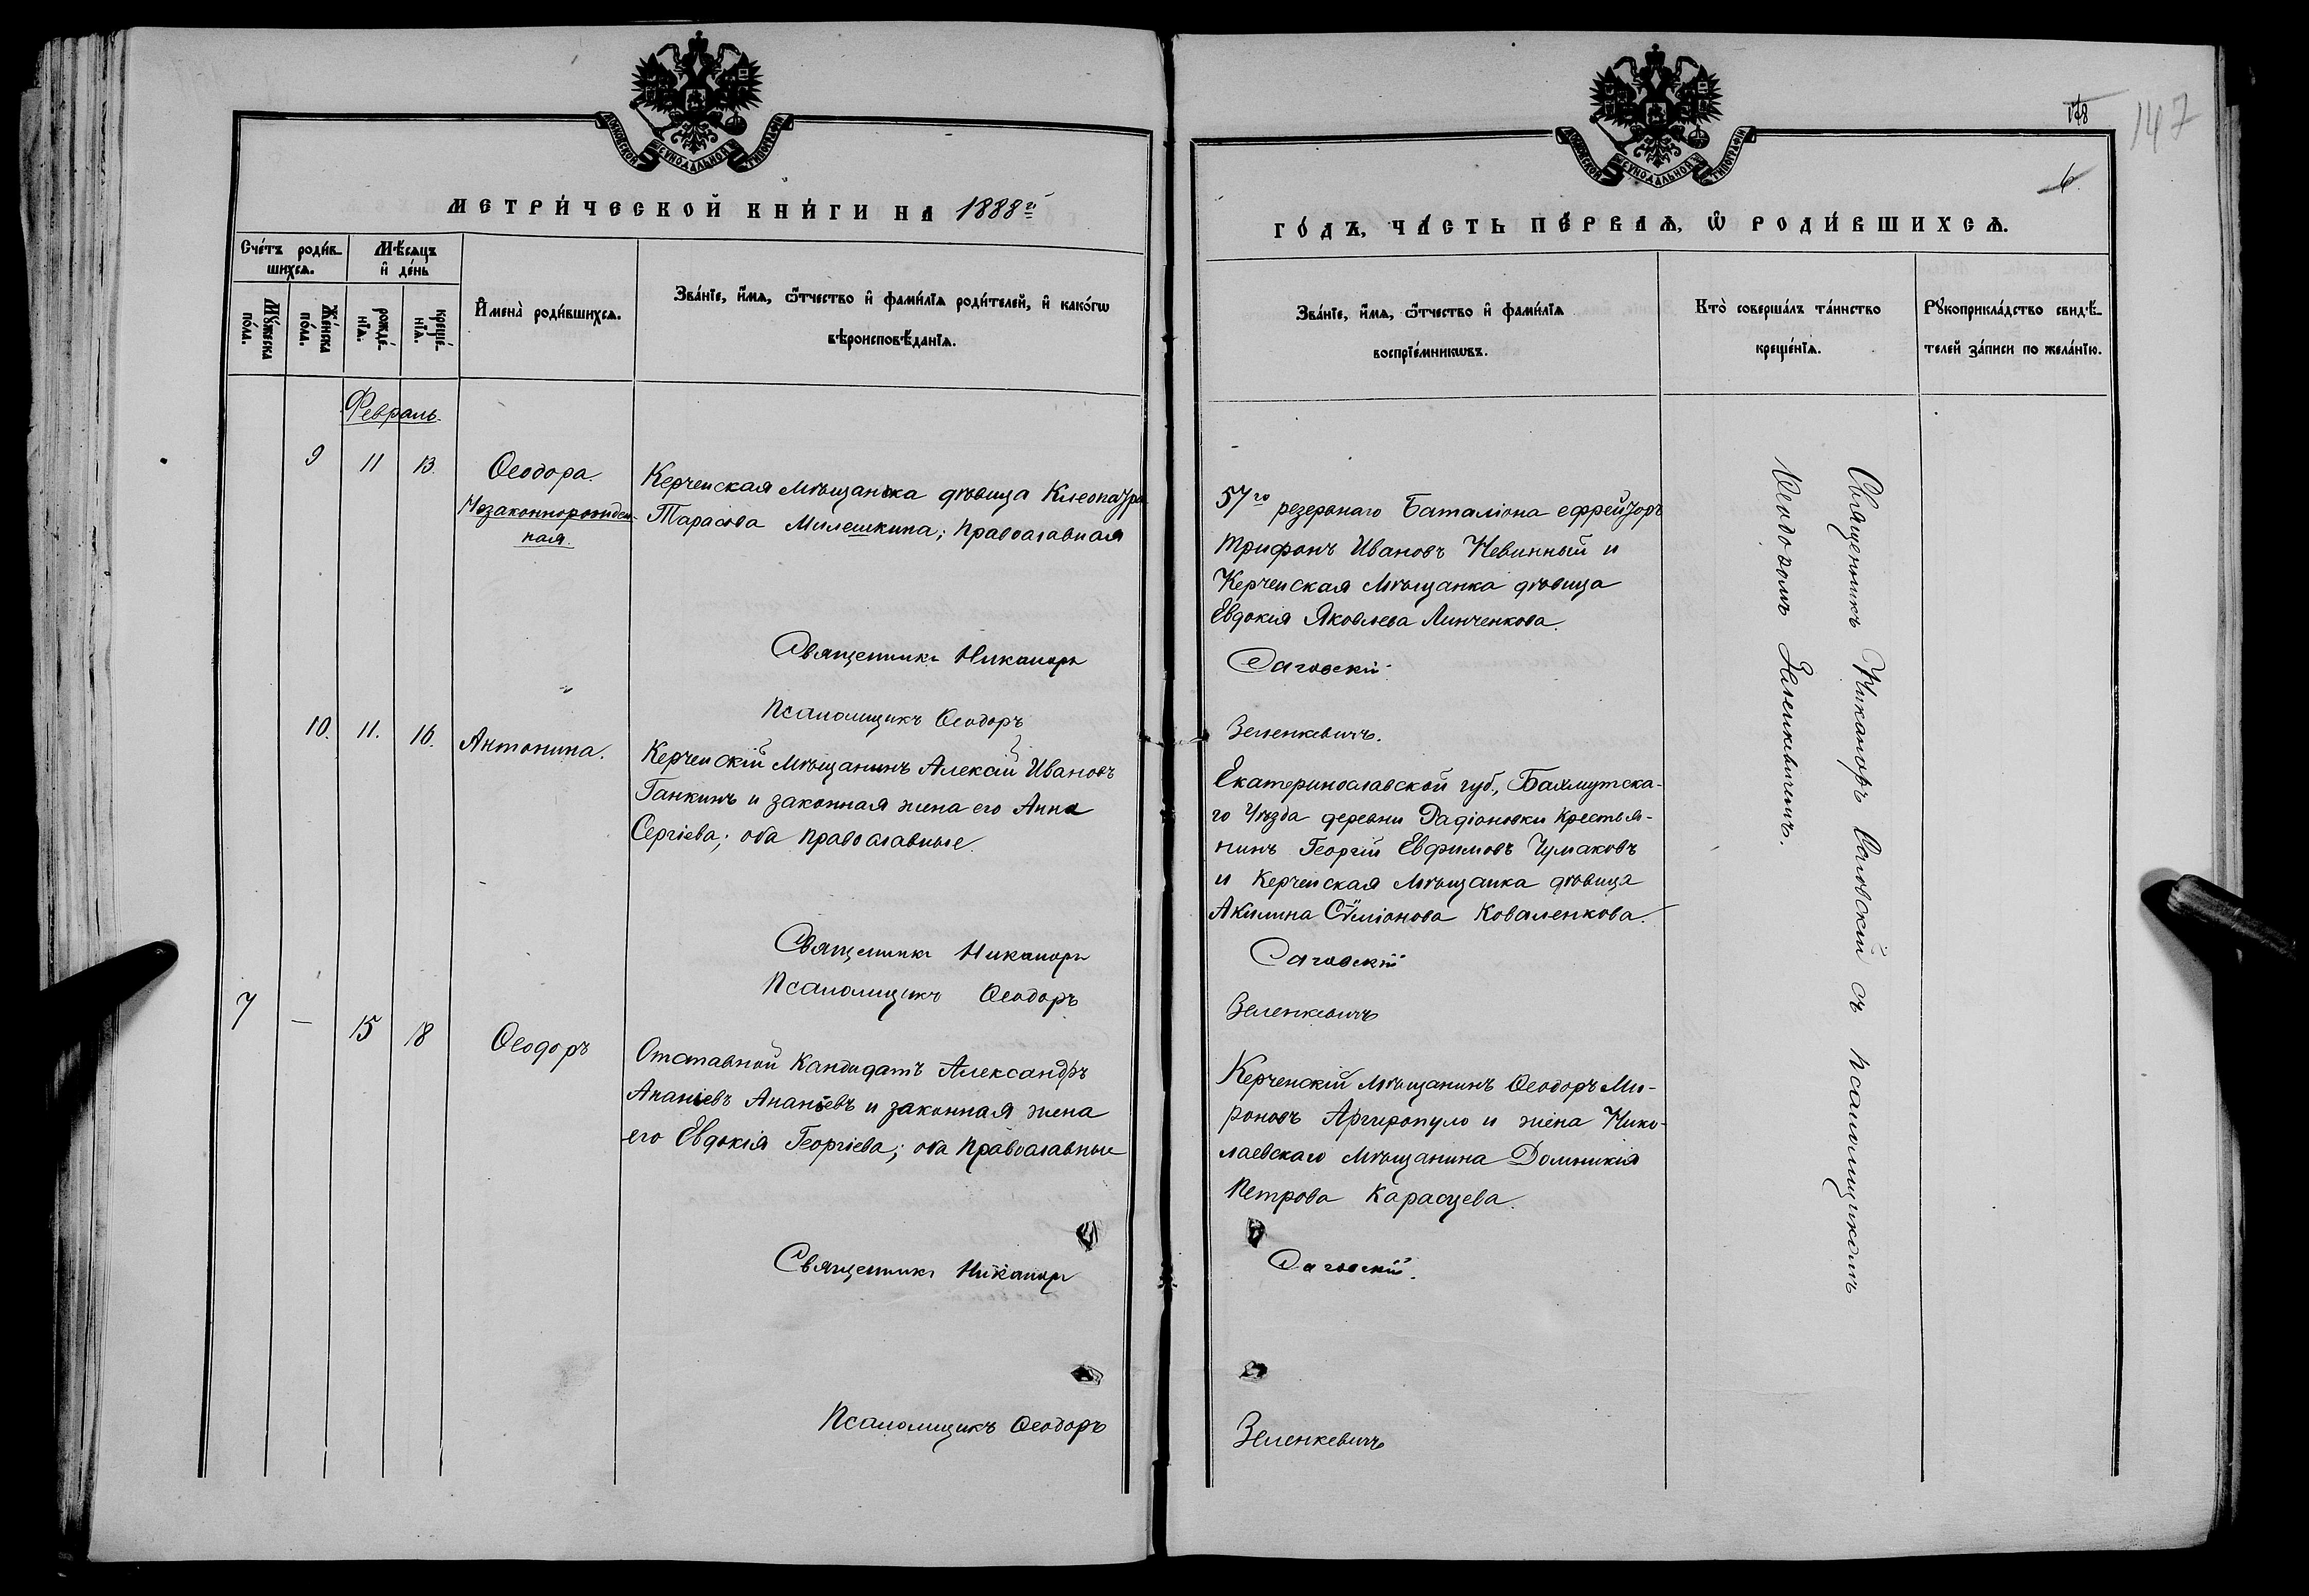 МОСКОВСКОЙ СѴНОДАЛЬНОЙ ТИПОГРАФІИ
МЕТРИ́ЧЕСКОЙ КНИ́ГИ НА 1888й
Сче́тъ роди́в-
шихсѧ.
Мѣ́сѧцъ
и҆ де́нь
Мꙋ́жеска
по́ла.
Же́нска
по́ла.
рожде́-
нїѧ.
креще́-
нїѧ.
И҆мена̀ роди́вшихсѧ.
Зва́нїе, и҆́мѧ, ѻ҆́тчество и҆ фами́лїѧ роди́телей, и҆ како́гѡ
вѣроисповѣ́данїѧ.
Февраль.
9 11 13.
Ѳеодора.
Незаконнорожден-
ная.
Керченская Мѣщанка дѣвица Клеопатра
Тарасова Милешкина; Православная
Священникъ Никаноръ
Псаломщикъ Ѳеодоръ
10. 11. 16. Антонина.
Керченскій Мѣщанинъ Алексій Ивановъ
Ганкинъ и законная жена его Анна
Сергіева; оба Православные.
Священникъ Никаноръ
Псаломщикъ Ѳеодоръ
7 — 15 18 Ѳеодоръ
Отставной Кандидатъ Александръ
Ананіевъ Ананьевъ и законная жена
его Евдокія Георгіева; оба Православные
Священникъ Никаноръ
Псаломщикъ Ѳеодоръ
147
178
6.
МОСКОВСКОЙ СѴНОДАЛЬНОЙ ТИПОГРАФІИ
ГО́ДЪ, ЧА́СТЬ ПЕ́РВАѦ, Ѡ҆ РОДИ́ВШИХСѦ.
Зва́нїе, и҆́мѧ, ѻ҆́тчество и҆ фами́лїѧ
воспрїе́мникѡвъ.
Кто̀ соверша́лъ та́инство
креще́нїѧ.
Рꙋкоприкла́дство свидѣ́-
телей за́писи по жела́нїю.
57го резервнаго Баталіона ефрейторъ
Трифонъ Ивановъ Невинный и
Керченская Мѣщанка дѣвица
Евдокія Яковлева Линченкова.
Саговскій
Зеленкевичъ.
Екатеринославской губ., Бахмутска-
го Уѣзда деревни Радіоновки Крестья-
нинъ Георгій Евфимовъ Чумаковъ
и Керченская Мѣщанка дѣвица
Акилина Сѵміонова Коваленкова.
Саговскій
Зеленкевичъ
Керченскій Мѣщанинъ Ѳеодоръ Ми-
роновъ Аргиропуло и жена Нико-
лаевскаго Мѣщанина Домникія
Петрова Карасцева.
Саговскій.
Зеленкевичъ
Священникъ Никаноръ Саговскій съ псаломщикомъ
Ѳеодоромъ Зеленкевичемъ.